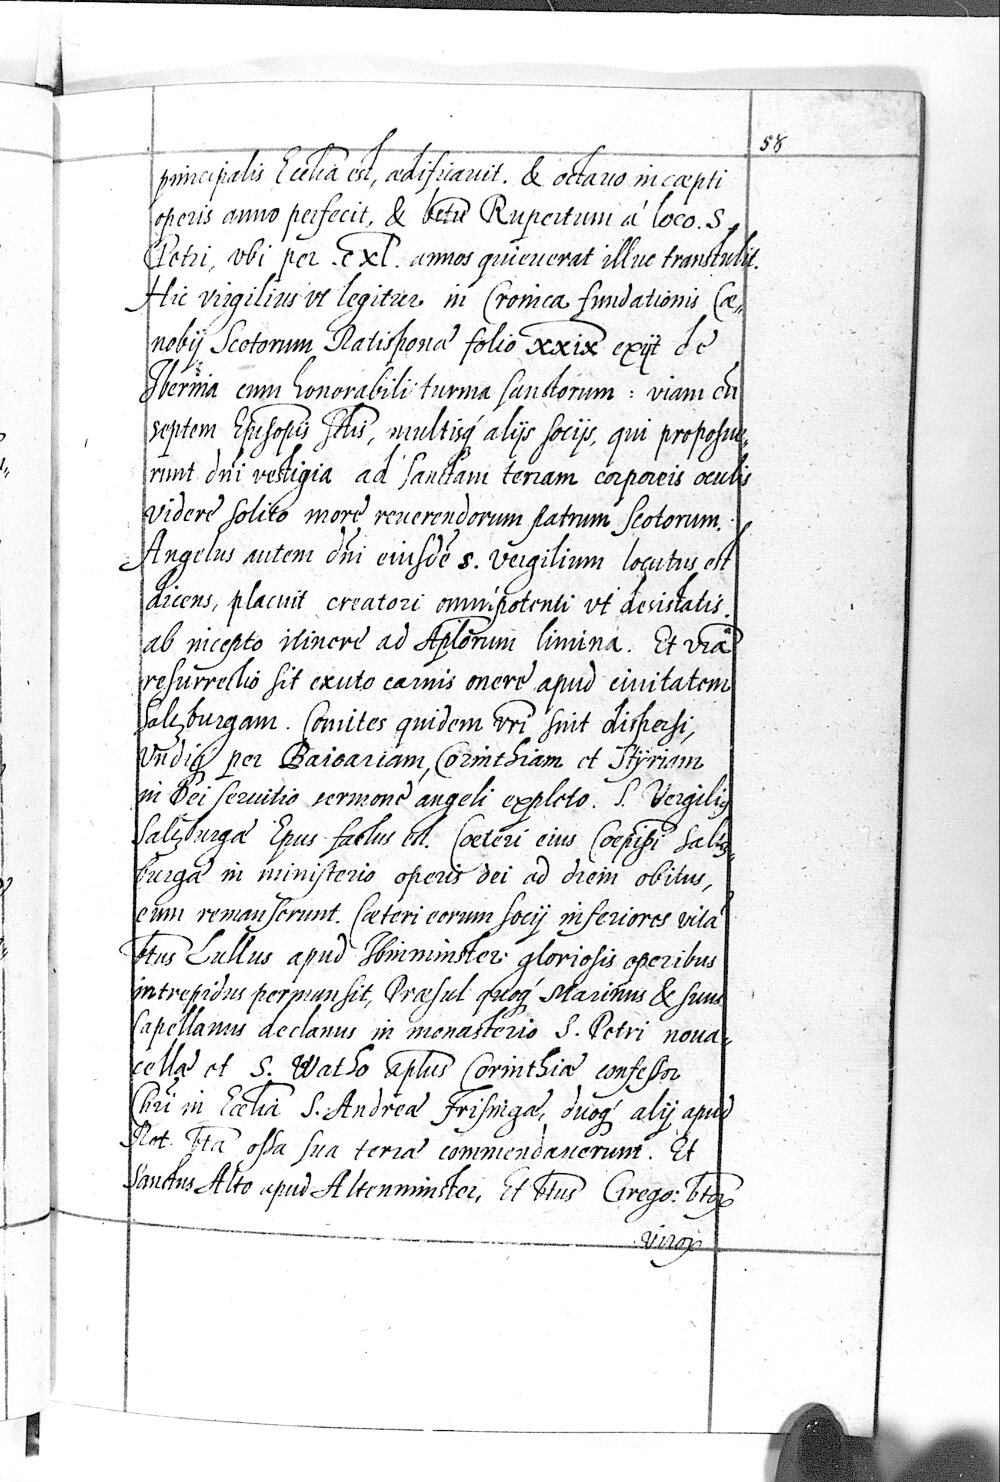 58
principalis Ecclia est, ædificauit. & octauo incæpti
operis anno perfecit, & btũ Rupertum á loco. S.
Petri, vbi per .cxl. annos quieuerat illuc transtulit.
Hic virgilius vt legitur in Cronica fundationis Cæ-
nobij Scotorum Ratisponæ folio xxix exijt de
Ibernia cum honorabili turma sanctorum : viam cũ
septem Episopis Stis, multisq́ alijs socijs, qui proposue-
runt dñi vestigia ad sanctam terram corporeis oculis
videre solito more reuerendorum patrum Scotorum.
Angelus autem dñi eiusdẽ s. vergilium locutus est
dicens, placuit creatori omnipotenti vt desistatis.
ab incepto itinere ad Aplõrum limina. Et vrã
resurrectio sit exuto carnis onere apud ciuitatem
Salzburgam. Comites quidem vri sint dispersi,
vndiq́ per Baioariam, Corinthiam et Styriam
in Dei seruitio sermone angeli expleto. S. Vergiliꝯ
Salzburgæ Epus factus est. Cæteri eius Coepisi Salz-
burgæ in ministerio operis dei ad diem obitus,
cum remanserunt. Cæteri eorum socij inferiores vita
btus Lullus apud Ilminminster gloriosis operibus
intrepidus permansit, Præsul quoq́ Marinus & suus
capellanus declanus in monasterio S. Petri noua-
cellæ et S. Watho aplus Corinthiæ confessor
Chri in Ecclia S. Andreæ Frisingæ, duoq́ alij apud
Rot. bta ossa sua terræ commendauerunt. Et
Sanctus Alto apud Altenminster, Et btus Grego: btoꝝ
viroꝝ